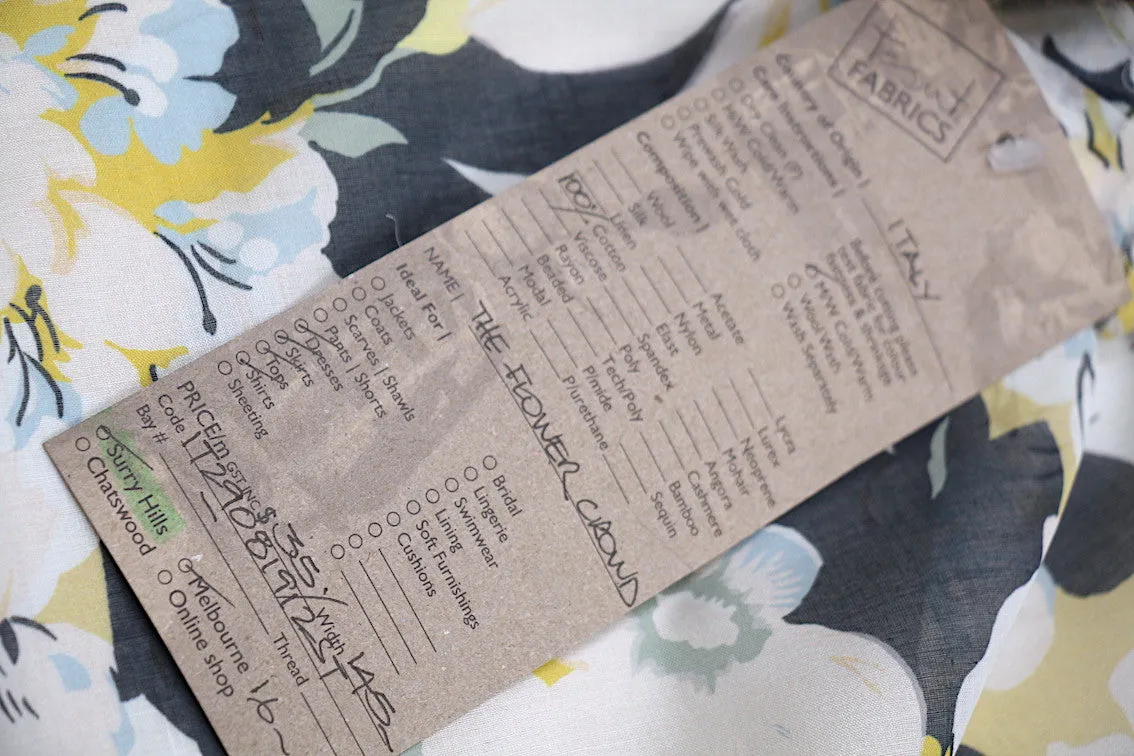 Tessuti
FABRICS
Country of Origin | ITALY
Care Instructions |
Before cutting please
test fabric for colour
fastness & shrinkage
Dry Clean (P)
M/W Cold/Warm
M/W Cold/Warm
Silk Wash
Wool Wash
Prewash Cold
Wash Separately
Wipe with wet cloth
Composition |
Wool
Acetate
Lycra
Silk
Metal
Lurex
Linen
Nylon
Neoprene
100% Cotton
Elast
Mohair
Viscose
Spandex
Angora
Rayon
Poly
Cashmere
Beaded
Tech/Poly
Bamboo
Modal
P/imide
Sequin
Acrylic
P/urethane
NAME | THE FLOWER CROWD
Ideal For |
Jackets
Bridal
Coats
Lingerie
Scarves | Shawls
Swimwear
Pants | Shorts
Lining
Dresses
Soft Furnishings
Skirts
Cushions
Tops
Shirts
Sheeting
PRICE/m GST INC $ 35 Width 145
Code
Bay #
Thread
Surry Hills
Melbourne 1/6
Chatswood
Online shop